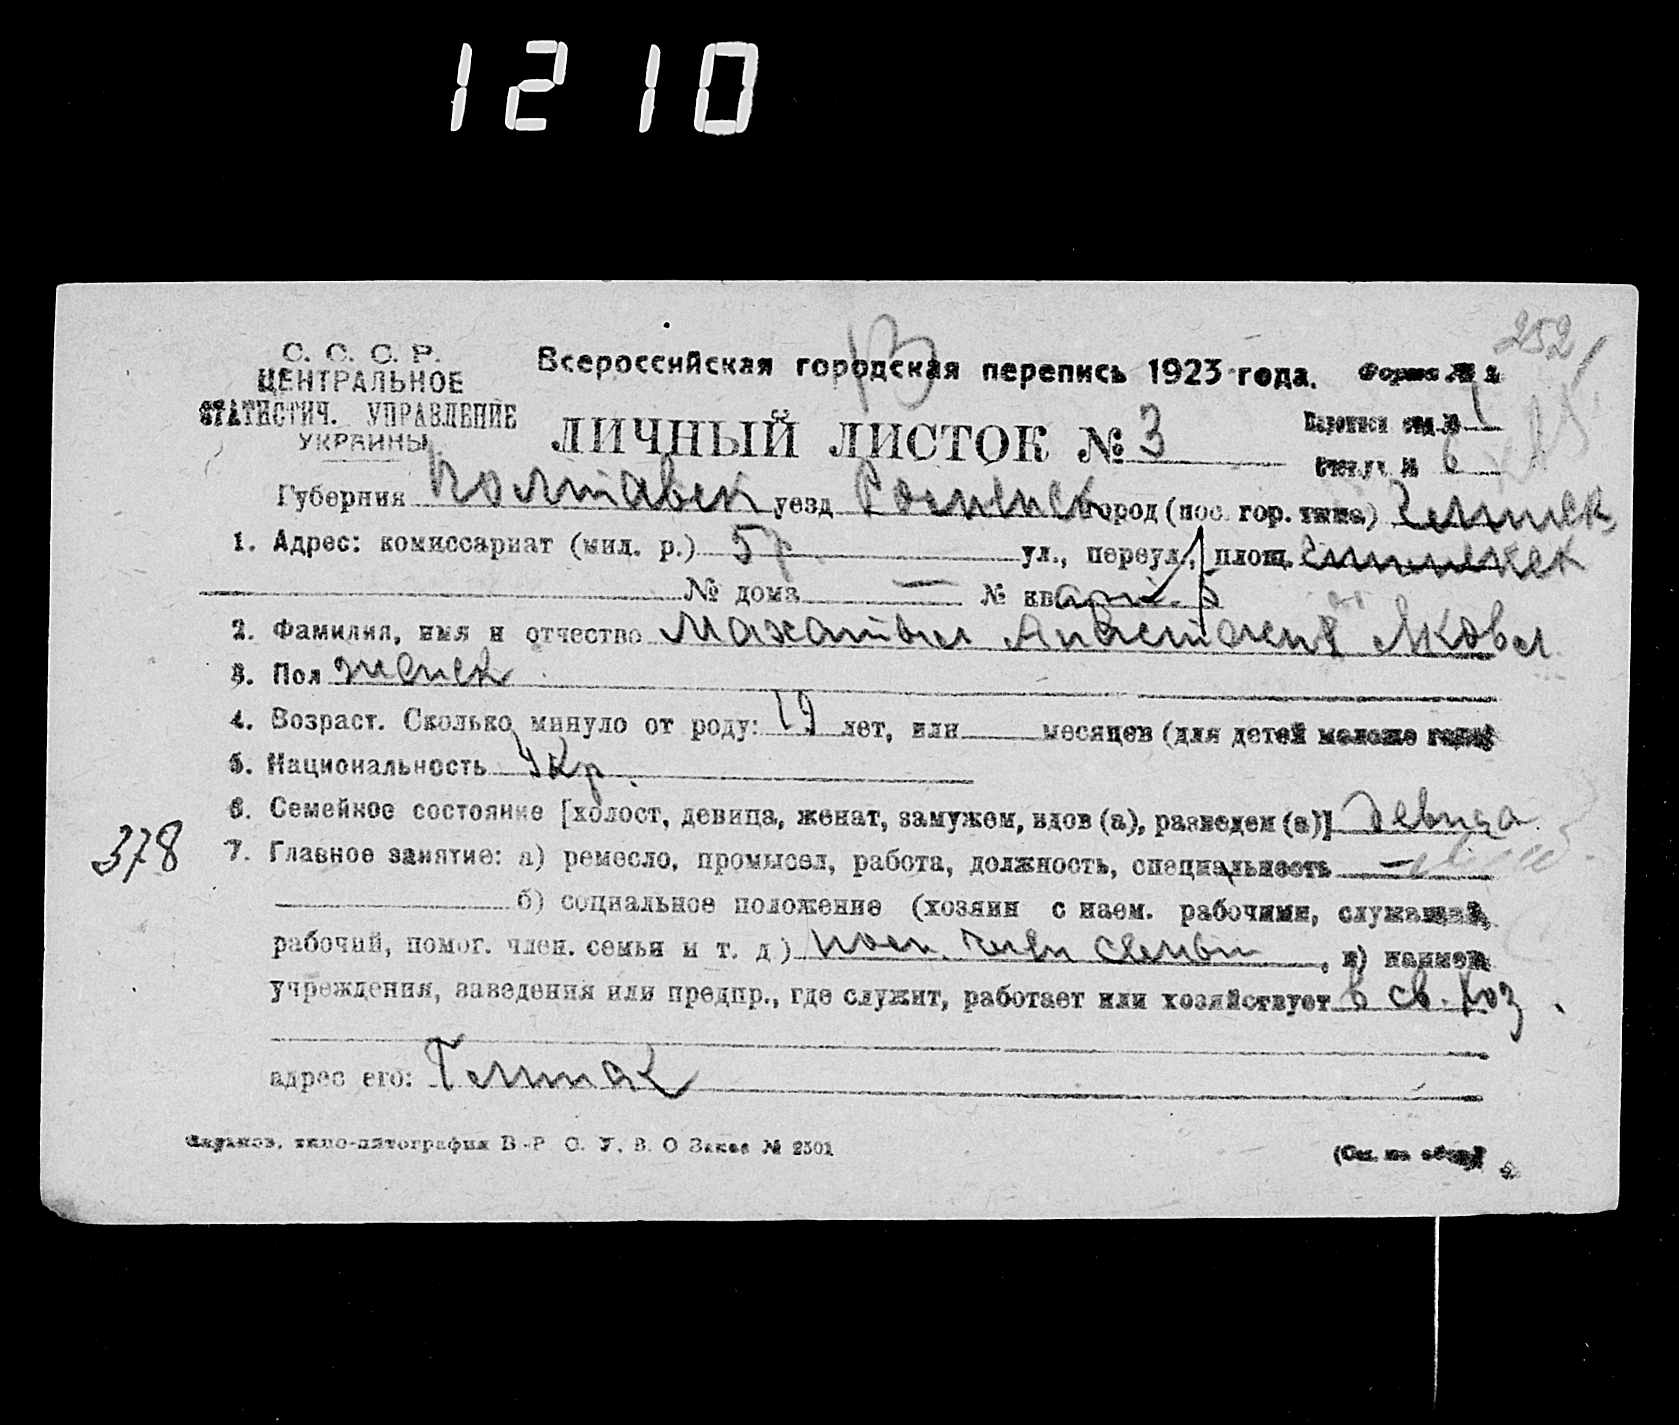 1210
252
С. С. С. Р.
ЦЕНТРАЛЬНОЕ
СТАТИСТИЧ. УПРАВЛЕНИЕ
УКРАИНЫ
Всероссийская городская перепись 1923 года.
Форма № 1
ЛИЧНЫЙ ЛИСТОК № 3
Счетн. уч. № 6
Губерния Полтавск уезд Роменск город (пос. гор. типа)
1. Адрес: комиссариат (мил. р.) 5 р. ул., переул., площ.
№ дома — № кв
2. Фамилия, имя и отчество Анастасия Яковл
3. Пол женск
4. Возраст. Сколько минуло от роду: 19 лет, или месяцев (для детей моложе года)
5. Национальность Укр.
6. Семейное состояние [холост, девица, женат, замужем, вдов (а), разведен (а)] девица
378
7. Главное занятие: а) ремесло, промысел, работа, должность, специальность —
б) социальное положение (хозяин с наем. рабочими, служащий,
рабочий, помог. член. семьи и т. д.) пом. член семьи, в) наимен.
учреждения, заведения или предпр., где служит, работает или хозяйствует в св. хоз
адрес его:
Харьков, типо-литография В-Р С. У. В. О Заказ № 2501
(См. на обор.)